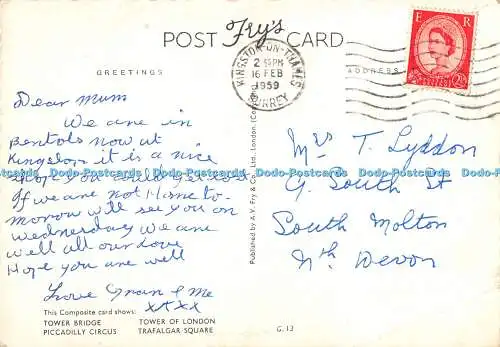 POST Fry's CARD
GREETINGS
ADDRESS
KINGSTON-UPON-THAMES
2 PM
16 FEB
1959
SURREY
E R
Dear Mum
We are in
Bentols now at
Kingston it is a nice
shop
If we are not Home to-
morrow will see you on
Wednesday we are
well all our Love
Hope you are well
Love Gran & Me
xxxx
Mrs T. Lyddon
9. South St
South Molton
Nth Devon
Published by A.V. Fry & Co., Ltd., London.
This Composite card shows:
TOWER BRIDGE TOWER OF LONDON
PICCADILLY CIRCUS TRAFALGAR SQUARE
G.13
Dodo-Postcards Dodo-Postcards Dodo-Postcards Dodo-Postcards Dodo-Postcards